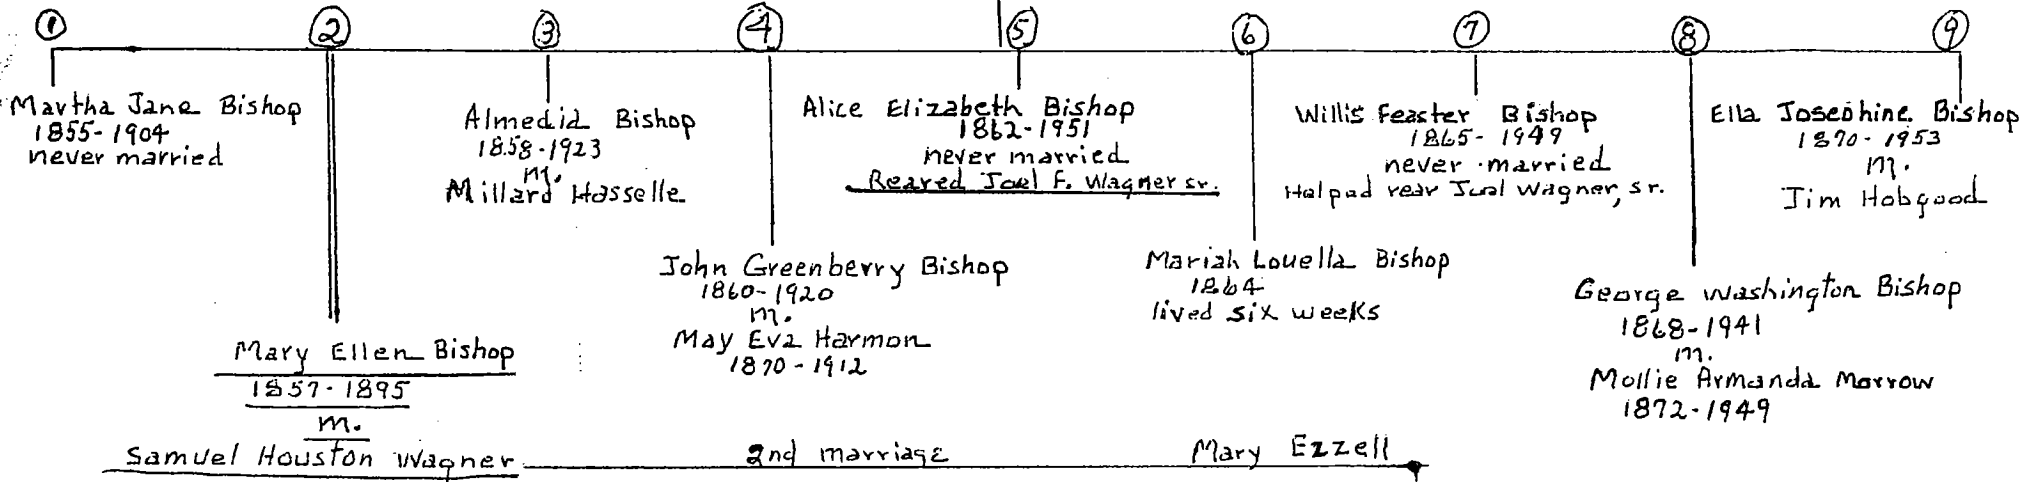 1 2 3 4 5 6 7 8 9
Martha Jane Bishop
1855-1904
never married
Mary Ellen Bishop
1857-1895
m.
Samuel Houston Wagner
2nd marriage
Mary Ezzell
Almedia Bishop
1858-1923
m.
Millard Hasselle
John Greenberry Bishop
1860-1920
m.
May Eva Harmon
1870-1912
Alice Elizabeth Bishop
1862-1951
never married
Reared Joel F. Wagner sr.
Mariah Louella Bishop
1864
lived six weeks
Willis Feaster Bishop
1865-1949
never married
Helped rear Joel Wagner, sr.
George Washington Bishop
1868-1941
m.
Mollie Armanda Morrow
1872-1949
Ella Josephine Bishop
1870-1953
m.
Jim Hobgood